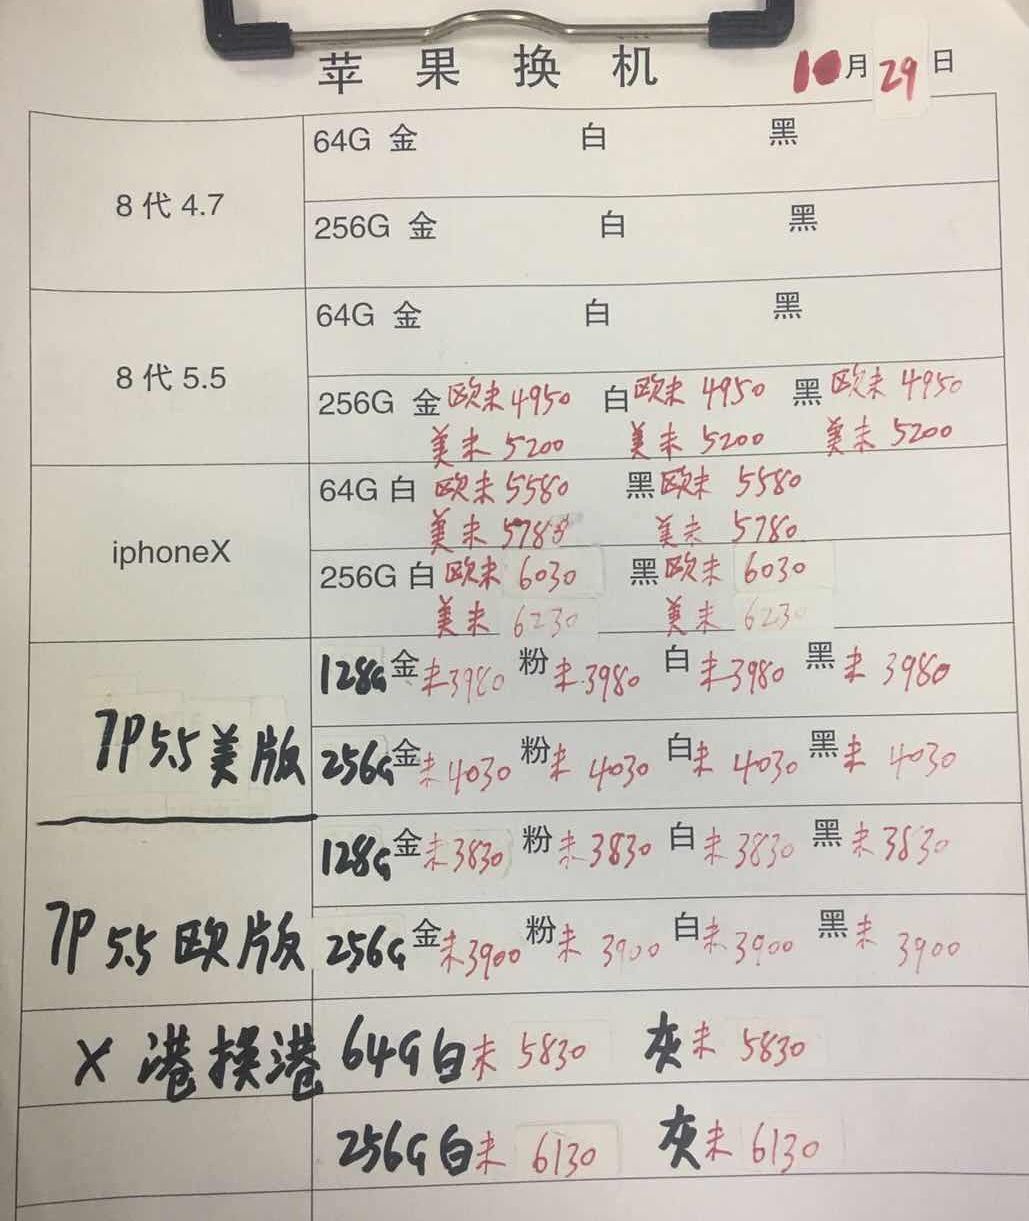 苹果换机 10月29日
8代4.7
64G 金 白 黑
256G 金 白 黑
8代5.5
64G 金 白 黑
256G 金 欧未 4950 白 欧未 4950 黑 欧未 4950
美未 5200 美未 5200 美未 5200
iphoneX
64G 白 欧未 5580 黑 欧未 5580
美未 5780 美未 5780
256G 白 欧未 6030 黑 欧未 6030
美未 6230 美未 6230
7P 5.5 美版
128G 金 未 3980 粉 未 3980 白 未 3980 黑 未 3980
256G 金 未 4030 粉 未 4030 白 未 4030 黑 未 4030
7P 5.5 欧版
128G 金 未 3830 粉 未 3830 白 未 3830 黑 未 3830
256G 金 未 3900 粉 未 3900 白 未 3900 黑 未 3900
X 港换港 64G 白 未 5830 灰 未 5830
256G 白 未 6130 灰 未 6130